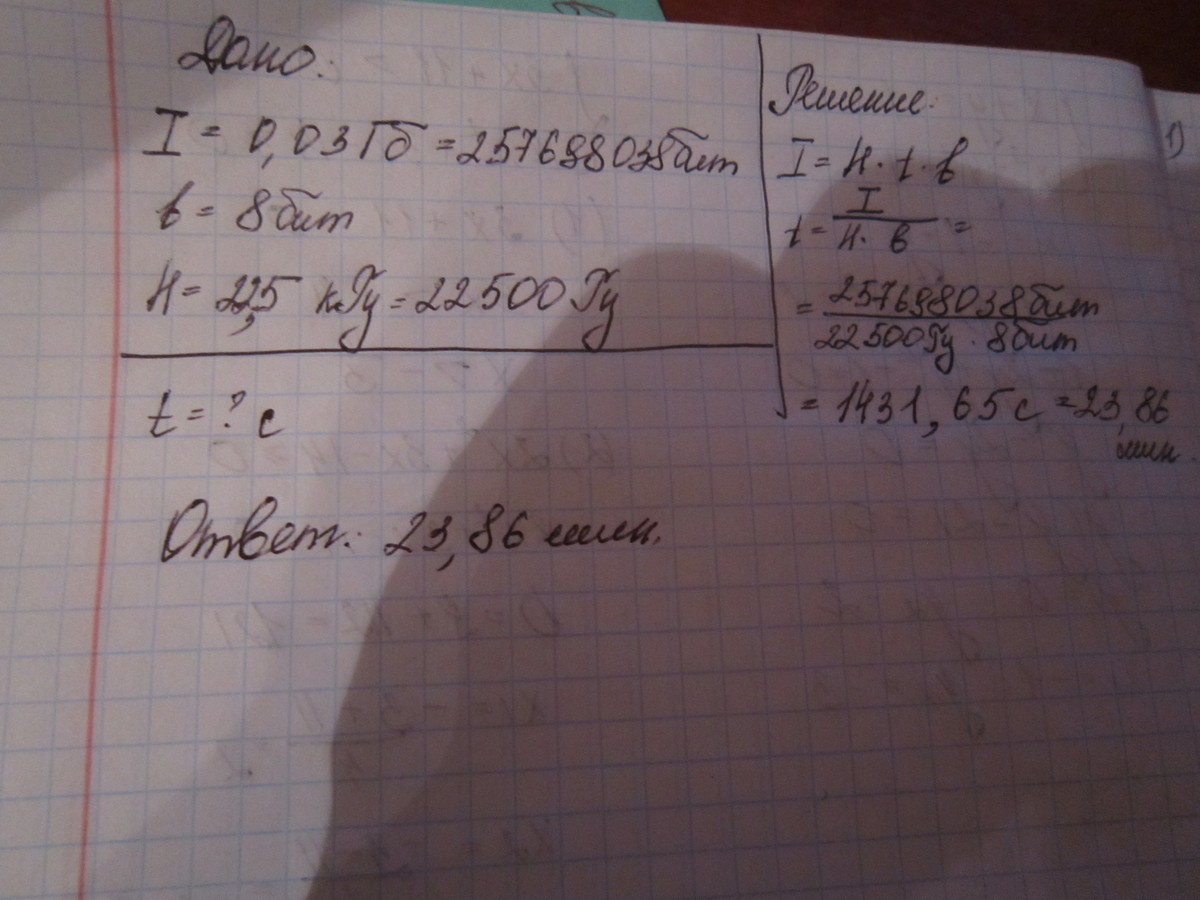 Дано:
I = 0,03 Гб = 257698038 бит
в = 8 бит
H = 22,5 кГц = 22500 Гц
t = ? с
Ответ: 23,86 мин.
Решение:
I = H · t · в
t = I / H · в =
= 257698038 бит / 22500 Гц · 8 бит
= 1431,65 с = 23,86
мин.
1)